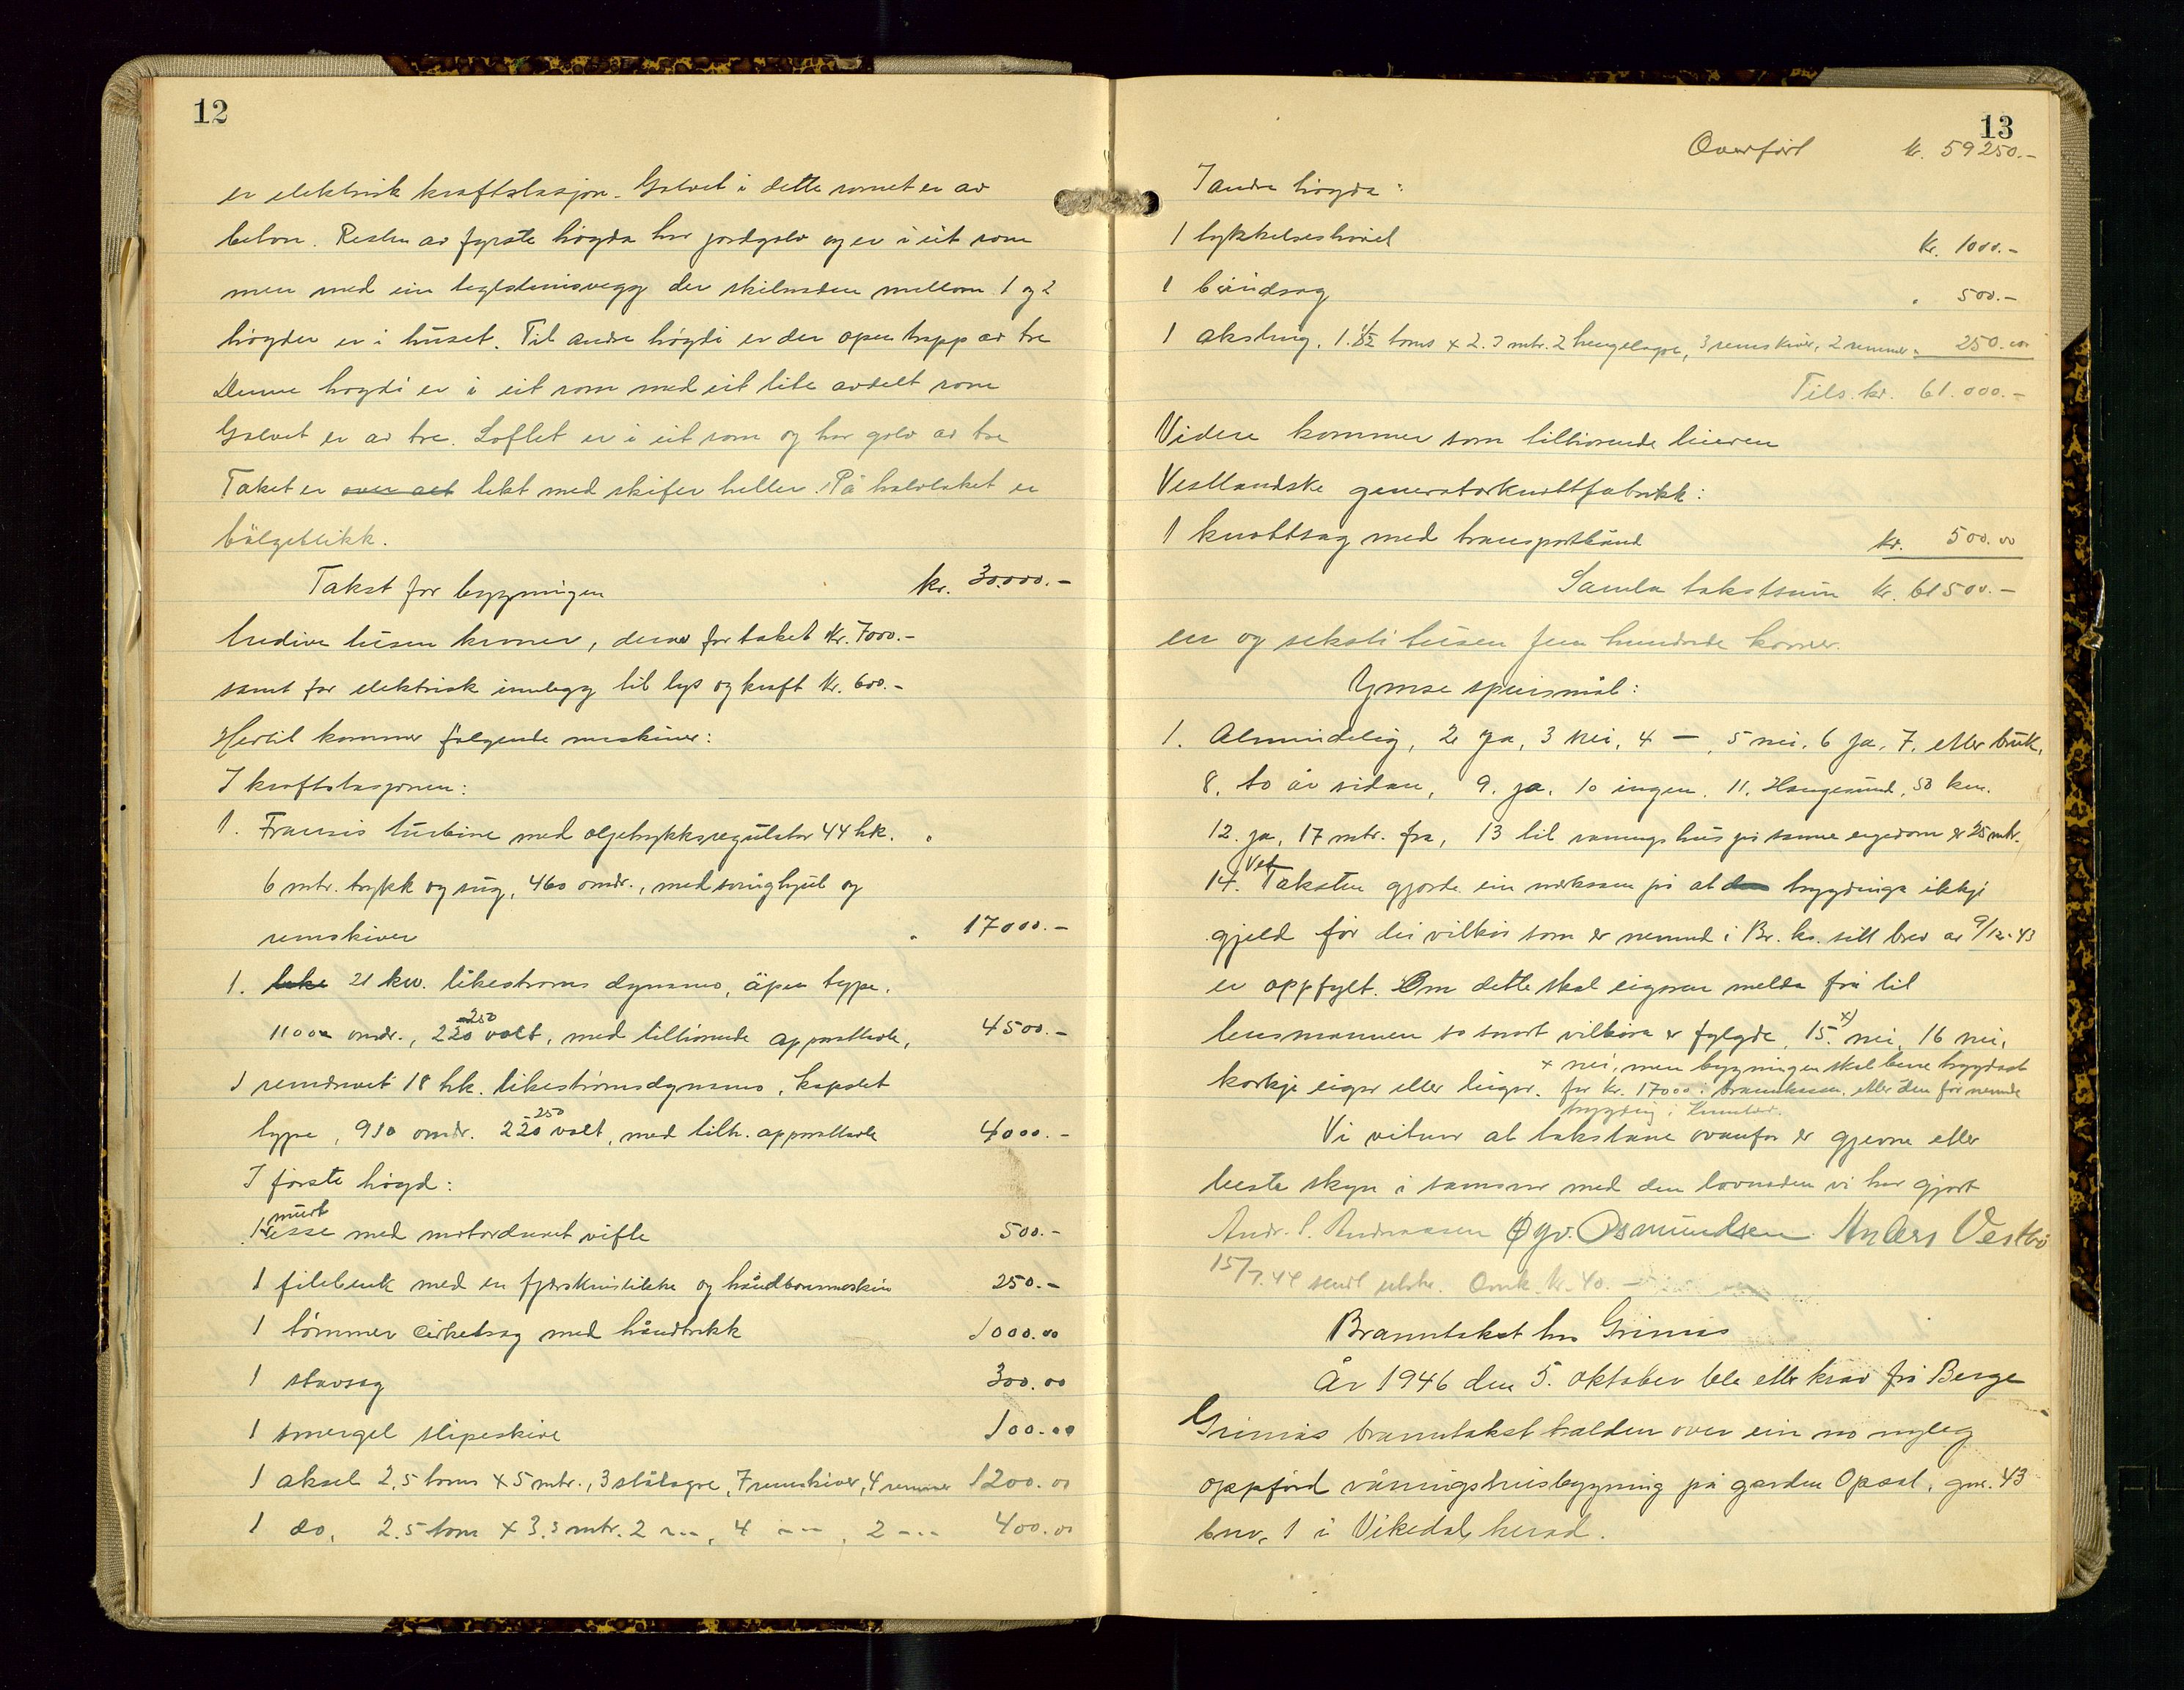 12
er elektrisk kraftstasjon. Golvet i dette romet er av
beton. Resten av fyrste högda har jordgolv og er i eit rom
men med ein teglsteinsvegg der skilnaden mellom 1 og 2
högder er i huset. Til andre högdi er der open trapp av tre
Denne högdi er i eit rom med eit lite avdelt rom
Golvet er av tre. Loftet er i eit rom og har golv av tre
Taket er over alt tekt med skifer heller. På halvtaket er
bölgeblikk.
Takst for bygningen kr. 30.000.-
tredive tusen kroner, derav for taket Kr. 7000.-
samt for elektrisk innlegg til lys og kraft Kr. 600.-
Hertil kommer fölgende maskiner:
I kraftstasjonen:
1. Francis turbine med oljetrykksregulator 44 hk.
6 mtr. trykk og sug, 460 omdr., med svinghjul og
remskiver 17000.-
1. 21 kw. likestroms dynamo, åpen type.
1100 omdr., 220 -250 volt, med tilhörende apparattavle, 4500.-
1 remdrevet 18 hk. likeströmsdynamo, kapslet
type, 910 omdr. 220 -250 volt, med tilh. apparattavle 4000.-
I förste högd:
1 murt esse med motordrevet vifte 500.-
1 filebenk med en fjærskrustikke og håndboremaskin 250.-
1 tömmer cirkelsag med håndtrekk 1000.00
1 stavsag 300.00
1 smergel slipeskive 100.00
1 aksel 2,5 toms x 5 mtr., 3 stålagre, 7 remskiver, 4 remmer 1200.00
1 do. 2.5 tom x 3.5 mtr. 2 -"-, 4 -"-, 2 -"- 400.00
13
Overfört kr. 59250.-
I andre högda:
1 tykkelseshövel Kr. 1000.-
1 bandsag " 500.-
1 aksling, 1.1/2 toms x 2.3 mtr. 2 hengelagre, 3 remskiver, 2 remmer " 250.00
Tils. kr. 61.000.-
Videre kommer som tilhörende leieren
Vestlandske generatorknottfabrikk:
1 knottsag med transportbånd kr. 500.00
Samla takstsum kr. 61500.-
en og seksti tusen fem hundrede kroner.
Ymse spursmål:
1. Almindelig, 2 ja, 3 nei, 4 -, 5 nei, 6 ja, 7. etter bruk,
8. to år sidan, 9. ja, 10 ingen. 11. Haugesund, 50 km.
12. ja, 17 mtr. fra, 13 til vaningshus på samme eigedom er 25 mtr.
14. Ved Taksten gjorde ein merksam på at trygdinga ikkje
gjeld för dei vilkår som er nemnd i Br. ks. sitt brev av 9/12-43
er oppfylt. Om dette skal eigaren melda frå til
lensmannen so snart vilkåra er fylgde. 15. x) nei, 16 nei,
x nei, men bygningen skal berre trygdast
korkje eigar eller leigar. for kr. 17000 i brannkassen, etter den för nemnde
trygding i
Vi vitnar at takstane ovanfor er gjevne etter
beste skyn i samsvar med den lovnaden vi har gjort
Andr. S. Andreassen Øyv. Osmundsen Anders Vestbö
15/7.44 sendt utskr. Omk. kr. 40. -
Branntakst hos Grimås
År 1946 den 5. oktober ble etter krav frå Berge
Grimås branntakst halden over ein no nyleg
oppförd våningshusbygning på garden Opsal, gnr. 43
bnr. 1 i Vikedal herad.